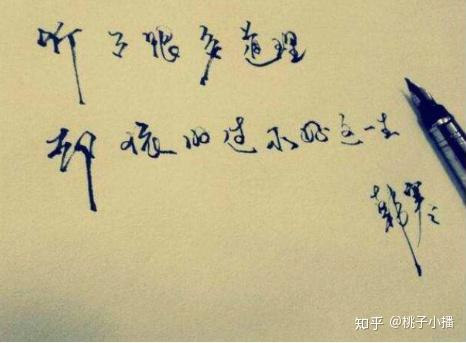 听了很多道理
却依旧过不好这一生
知乎 @桃子小播